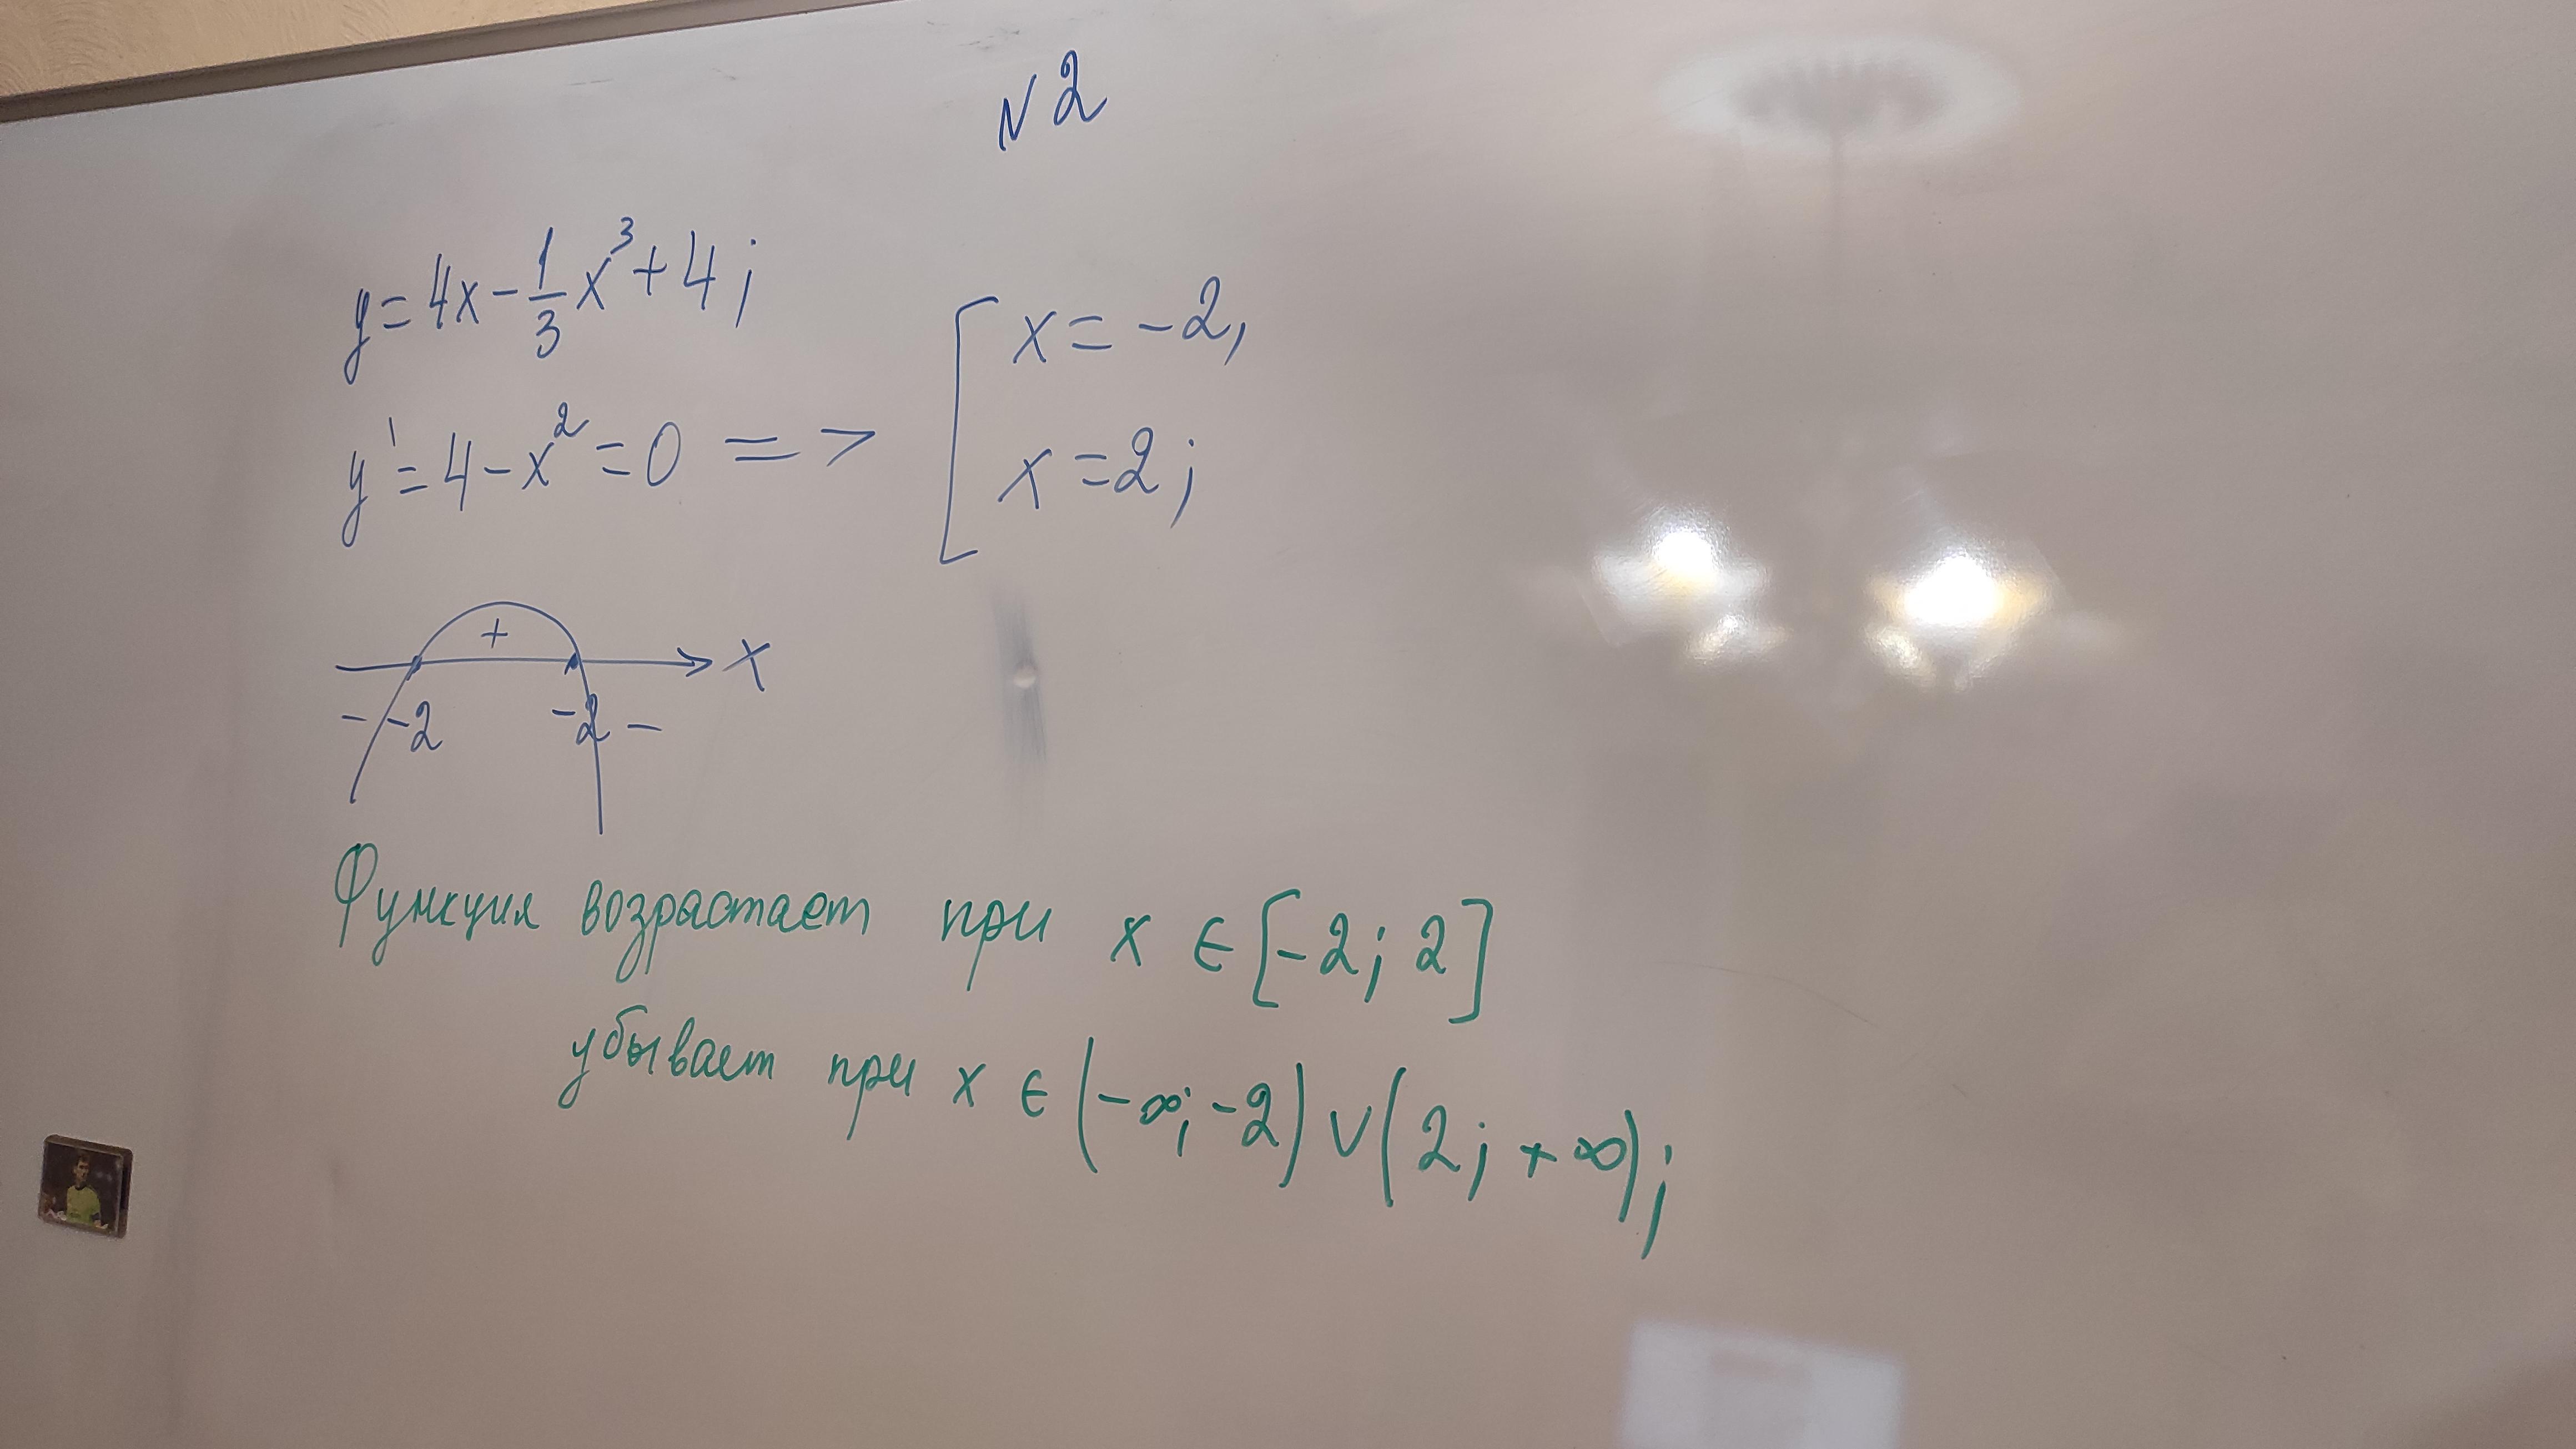 N 2
y = 4x - 1/3 x³ + 4;
y' = 4 - x² = 0 => [ x = -2,
x = 2;
+
x
- -2 -2 -
Функция возрастает при x ∈ [-2; 2]
убывает при x ∈ (-∞; -2) ∨ (2; +∞);